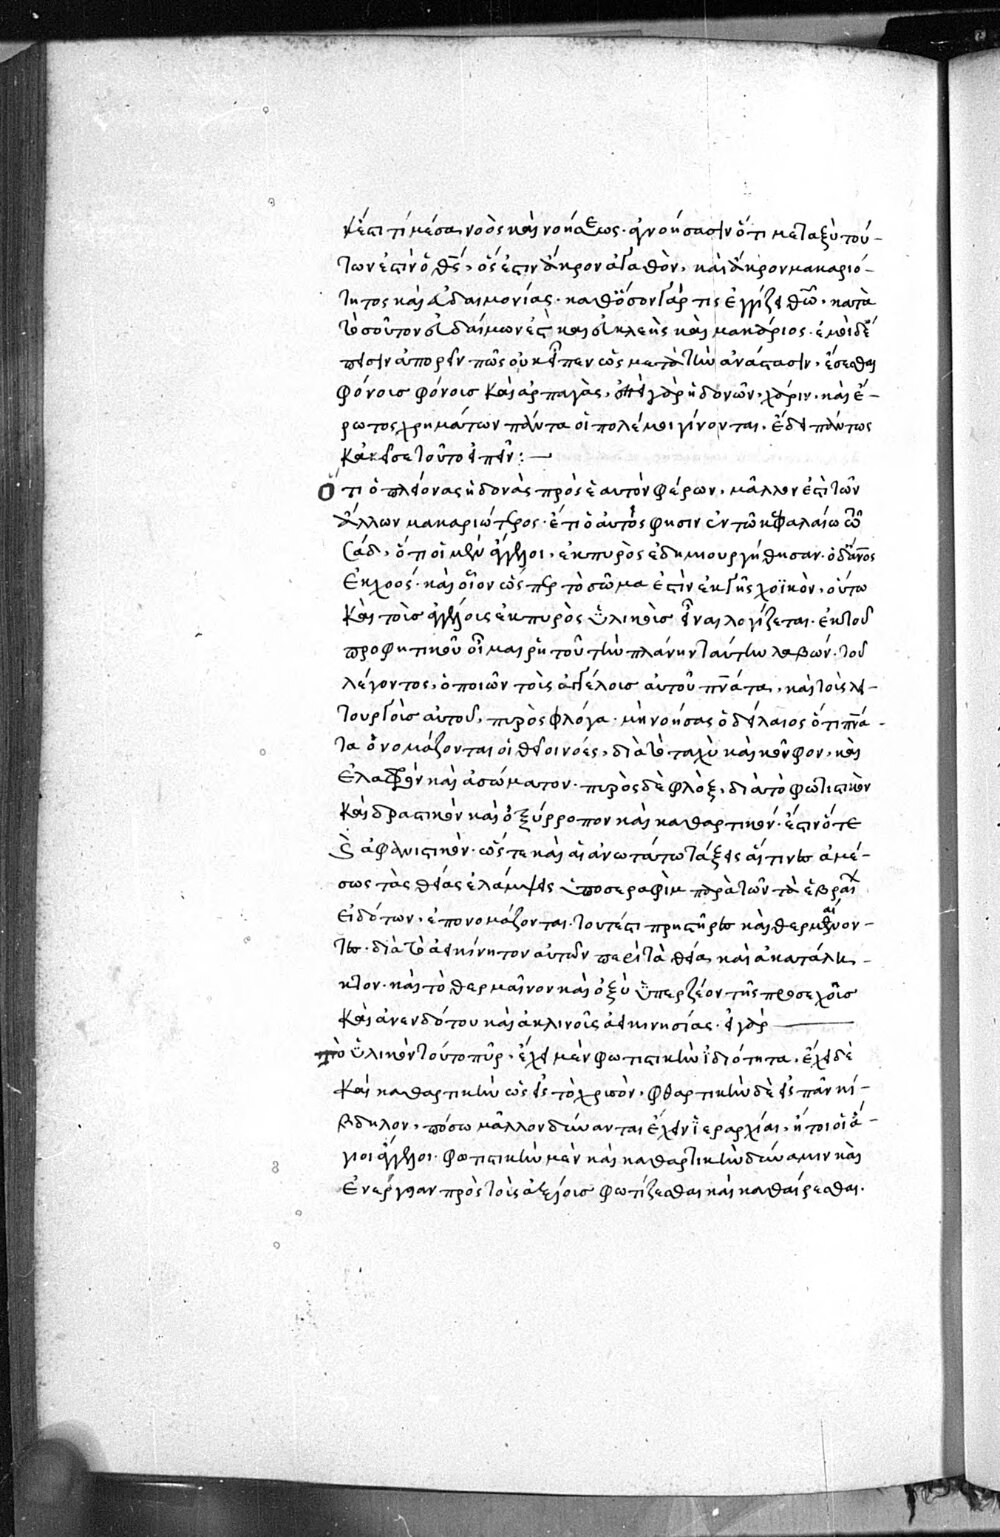 κέστι τί μέσα, νοὸς καὶ νοήσεως· ἀγνοήσασιν ὅτι μεταξὺ τού-
των ἐστὶν ὁ θς, ὅς ἐστιν ἄκρον ἀγαθὸν, καὶ ἄκρον μακαριό-
τητος καὶ εὐδαιμονίας· καθόσον γάρ τις ἐγγίζει θῶ, κατὰ
τοσοῦτον εὐδαίμων ἐστὶ καὶ εὐκλεὴς καὶ μακάριος· ἐμοὶ δὲ
πεσιν ἀπορεῖν πῶς οὐκ εἶπεν ὡς μετὰ τὴν ἀνάστασιν, ἔσεσθαι
φόνοις φόνοις καὶ ἁρπαγὰς, γὰρ ἡδονῶν, χάριν, καὶ ἔ-
ρωτος χρημάτων πάντα οἱ πολέμοι γίνονται, ἔδει πάντως
κἀκεῖσε τοῦτο εἰπεῖν:—
Ὅτι ὁ πλείονας ἡδονὰς πρὸς ἑαυτὸν φέρων, μᾶλλον ἐστὶ τῶν
ἄλλων μακαριώτερος· ἔτι ὁ αὐτός φησιν ἐν τῶ κεφαλαίω τῶ
, ὅτι οἱ μὲν ἄγγελοι, ἐκ πυρὸς ἐδημιουργήθησαν· ὁ δὲ ἄνος
ἐκ χοός· καὶ οἷον ὥσπερ τὸ σῶμα ἐστὶν ἐκ γῆς χοϊκὸν, οὕτω
καὶ τοῖς ἀγγέλοις ἐκ πυρὸς ὑλικοῖς εἶναι λογίζεται· ἐκ τοῦ
προφητικοῦ οἶμαι ῥητοῦ τὴν πλάνην ταύτην λαβών· τοῦ
λέγοντος, ὁ ποιῶν τοὺς ἀγγέλους αὐτοῦ πνάτα, καὶ τοὺς λει-
τουργοὺς αὐτοῦ, πυρὸς φλόγα· μὴ νοήσας ὁ δείλαιος ὅτι πνά-
τα ὀνομάζονται οἱ θεῖοι νόες, διὰ τὸ ταχὺ καὶ κοῦφον, καὶ
ἐλαφρὸν καὶ ἀσώματον· πυρὸς δὲ φλὸξ, διὰ τὸ φωτιστικὸν
καὶ δραστικὸν καὶ ὀξύρροπον καὶ καθαρτικόν· ἔστιν ὅτε
καὶ ἀφανιστικὸν· ὥστε καὶ αἱ ἀνωτάτω τάξεις αἵτινες ἀμέ-
σως τὰς θείας ἐλάμψεις ὑπο σεραφὶμ παρὰ τῶν τὰ ἑβραϊ
εἰδότων, ἐπονομάζονται· τουτέστι πρηστῆρες καὶ θερμαίνον-
τες· διὰ τὸ ἀεικίνητον αὐτῶν περὶ τὰ θεῖα, καὶ ἀκατάλη-
κτον· καὶ τὸ θερμαῖνον καὶ ὀξὺ ὑπερζέον τῆς προσεχοῦς
καὶ ἀνενδότου καὶ ἀκλινοῦς ἀεικινησίας· εἰ γὰρ
τὸ ὑλικὸν τοῦτο πῦρ, ἔχει μὲν φωτιστικὴν ἰδιότητα, ἔχει δὲ
καὶ καθαρτικὴν ὡς εἰς τὸ χρυσὸν, φθαρτικὴν δὲ εἰς πᾶν κί-
βδηλον, πόσω μᾶλλον δύνανται ἔχειν ἱεραρχίαι, ἤτοι οἱ ἅ-
γιοι ἄγγελοι· φωτιστικὴν μὲν καὶ καθαρτικὴν δύναμιν καὶ
ἐνέργειαν πρὸς τοὺς ἀξίους φωτίζεσθαι καὶ καθαίρεσθαι.